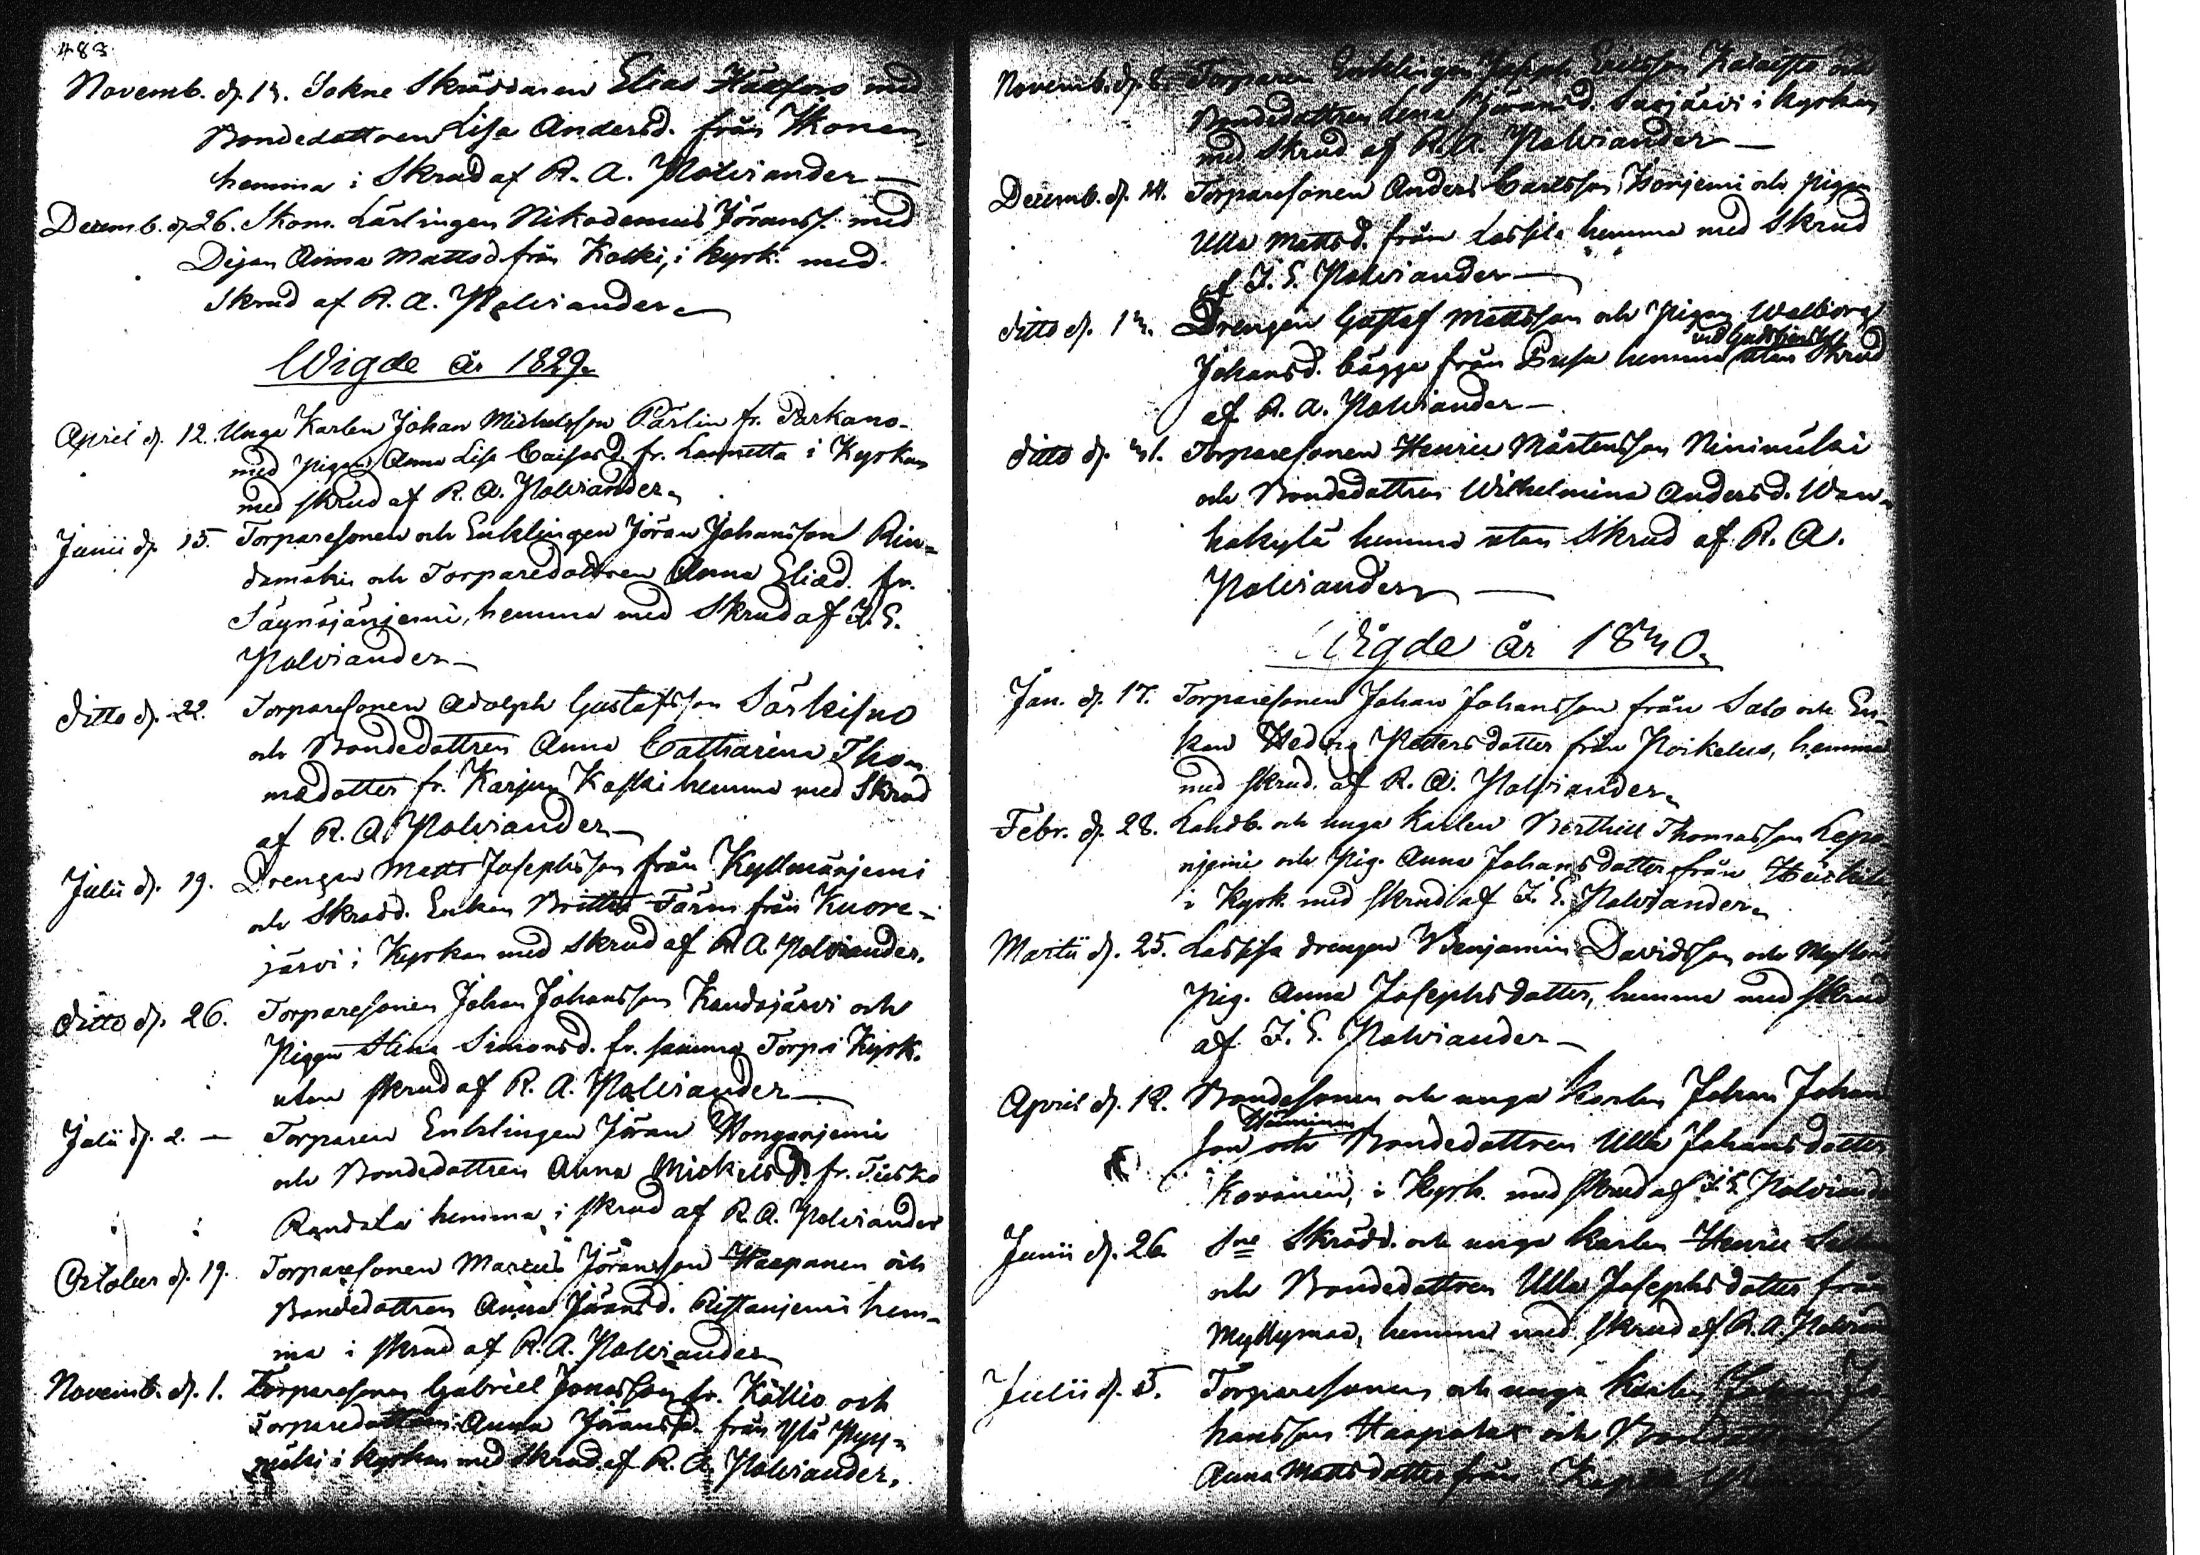 483
Novemb. d. 13. Sokne Skräddaren Elias Häxfors med
Bondedottren Lisa Andersd. från Ikonen
hemma i Skrud af R. A. Polviander
Decemb. d. 26. Skom. Lärlingen Nikodemus Jöranss. med
Pigan Anna Mattsd. från Kaski, i kyrk. med
Skrud af R. A. Polviander
Wigde år 1829.
April d. 12. Unga Karlen Johan Michelsson Pärlin fr. Parkano
med pigan Anna Lisa Caisasd. fr. Lannetta i Kyrkan
med skrud af R. A. Polviander.
Junii d. 15. Torparesonen och Enklingen Jöran Johansson Rin-
damäki och Torparedottren Anna Eliæd. fr.
Säynäjänjemi, hemma med Skrud af J. E.
Polviander
ditto d. 22. Torparesonen Adolph Gustafsson Särkisno
och Bondedottren Anna Catharina Tho-
madotter fr. Karjun Kaski hemma med Skrud
af R. A. Polviander
Julii d. 19. Drengen Matts Josephsson från Kyllmänjemi
och Skrädd. Enkan Britta Färm från Kuore-
järvi i Kyrkan med skrud af R. A. Polviander.
ditto d. 26. Torparesonen Johan Johansson Kaudajärvi och
Pigan Stina Simonsd. fr. samma Torp i Kyrk.
utan skrud af R. A. Polviander
Julii d. 2. Torparen Enklingen Jöran Honganjemi
och Bondedottren Anna Mickelsd. fr. Tiisko
Randala hemma i skrud af R. A. Polviander
October d. 19. Torparesonen Marcus Jöransson Haapanen och
Bondedottren Anna Jöransd. Ristanjemi hem-
ma i skrud af R. A. Polviander
Novemb. d. 1. Torparesonen Gabriel Jonasson fr. Kallio och
Torparedottren Anna Jöransd. från Ylä
i kyrkan med Skrud af R. A. Polviander.
Novemb. d. 8. Torparen Enklingen Joseph Ericsson och
Bondedottren Lena Jöransd. i kyrkan
med Skrud af R. A. Polviander
Decemb. d. 14. Torparesonen Anders Carlsson Honjemi och pigan
Ulla Mattsd. från Lassila hemma med Skrud
af J. E. Polviander
ditto d. 13. Drengen Gustaf Mattsson och Pigan Walborg
Johansd. bägge från Pusa hemma utan Skrud
af R. A. Polviander
ditto d. 31. Torparesonen Henric Mårtensson Ninimäki
och Bondedottren Wilhelmina Andersd. Wan-
hakylä hemma utan Skrud af R. A.
Polviander
Wigde år 1830.
Jan. d. 17. Torparesonen Johan Johansson från Salo och En-
kan Hedvig Petters dotter från Poikelus, hemma
med skrud. af R. A. Polviander.
Febr. d. 28. Landb. och unga Karlen Berthill Thomasson Lepä-
njemi och Pig. Anna Johans dotter från
i Kyrk. med skrud af J. E. Polviander.
Martii d. 25. Lassila drengen Benjamin Davidsson och
Pig. Anna Josephs dotter, hemma med skrud
af J. E. Polviander
April d. 12. Bondesonen och unga Karlen Johan Johan
son Hänninen och Bondedottren Ulla Johans dotter
i Kyrk. med skrud af J. E. Polviander
Junii d. 26. Sne Skrädd. och unga Karlen Henric
och Bondedottren Ulla Josephs dotter från
Myllymaa, hemma med skrud af R. A.
Julii d. 5. Torparesonen och unga Karlen Johan Jo
hansson och
Anna Matts dotter från